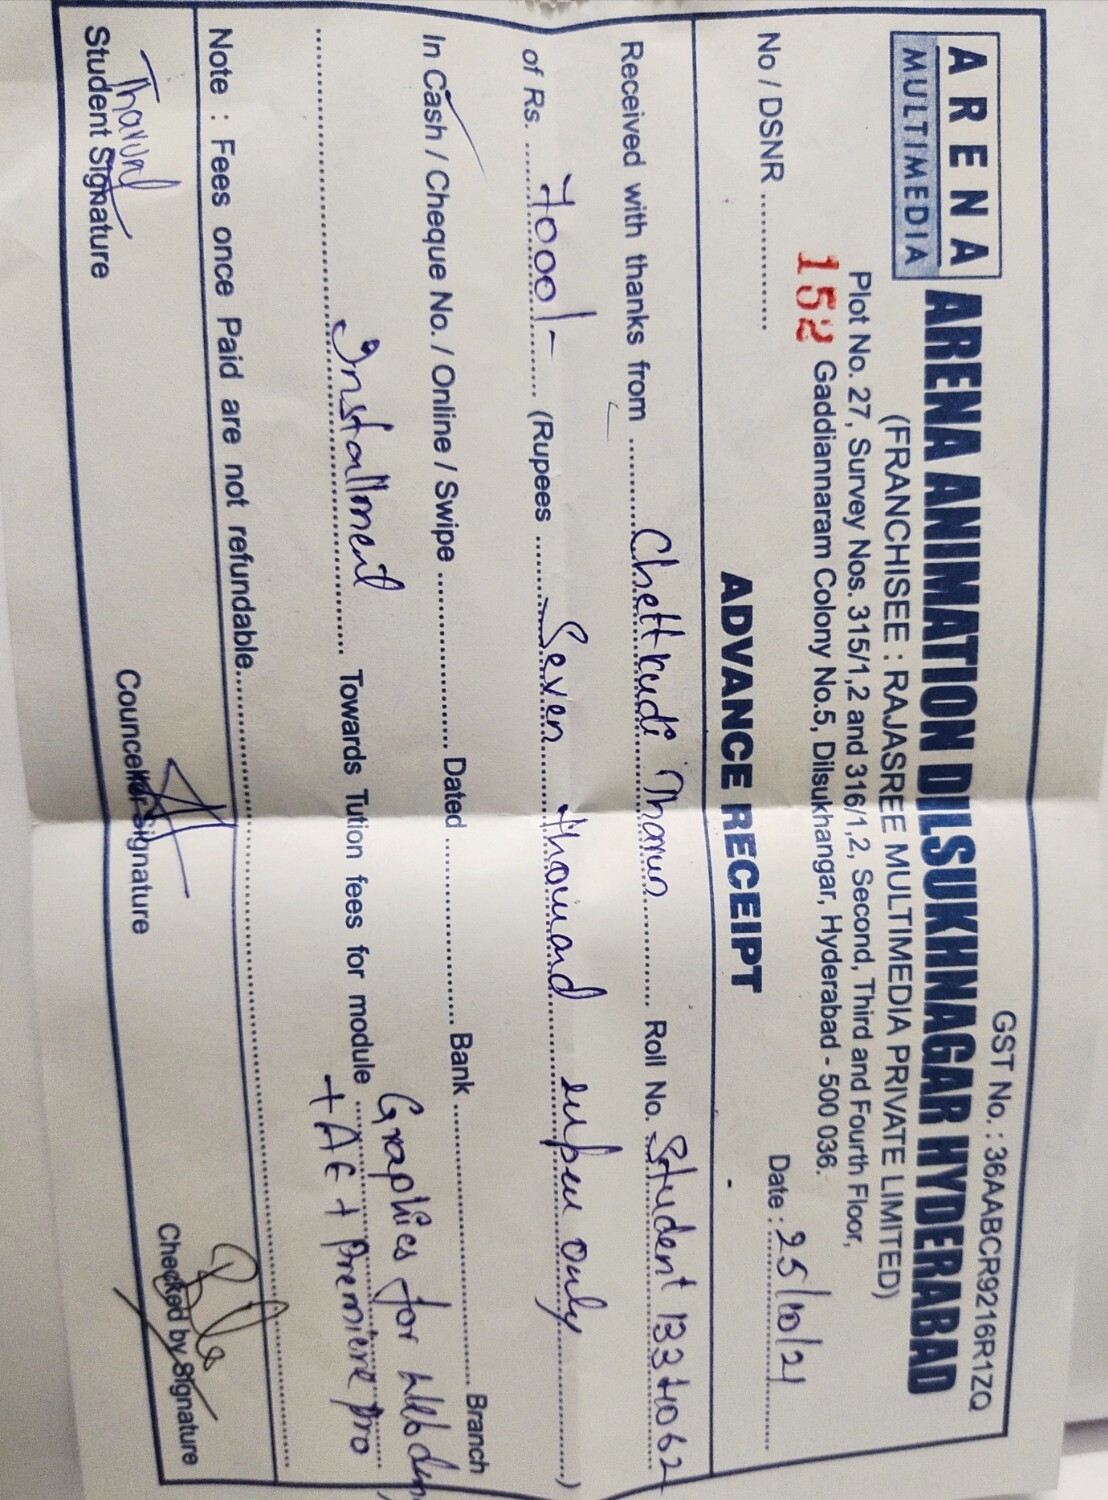 GST No. : 36AABCR9216R1ZQ
ARENA
MULTIMEDIA
ARENA ANIMATION DILSUKHNAGAR HYDERABAD
(FRANCHISEE : RAJASREE MULTIMEDIA PRIVATE LIMITED)
Plot No. 27, Survey Nos. 315/1,2 and 316/1,2, Second, Third and Fourth Floor,
152 Gaddiannaram Colony No.5, Dilsukhangar, Hyderabad - 500 036.
No / DSNR .............. Date : 25/10/21
ADVANCE RECEIPT
Received with thanks from Chettkudi Tharun Roll No. Student 1337062
of Rs. 7000/- (Rupees Seven thousand rupees only)
In Cash / Cheque No. / Online / Swipe .............. Dated .............. Bank .............. Branch
Installment Towards Tution fees for module Graphics for Web
+ AE + Premiere pro
Note : Fees once Paid are not refundable.
Tharun
Student Signature Councellor Signature Checked by Signature